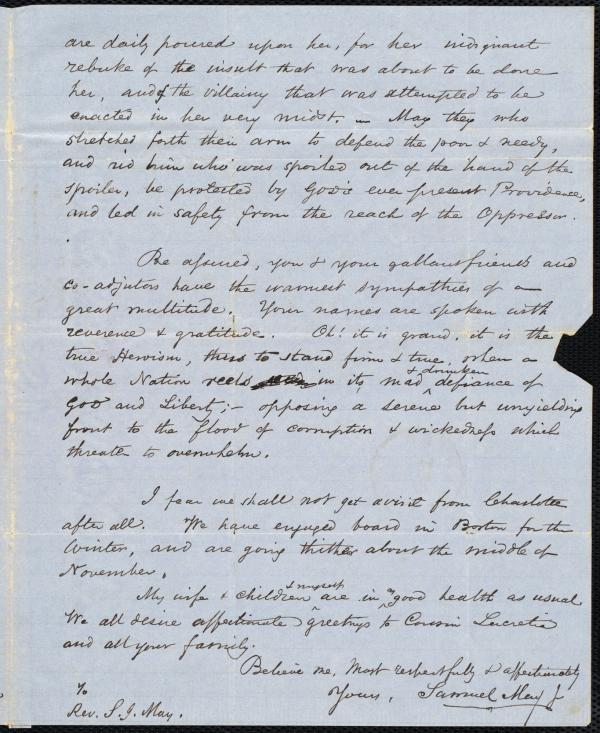 are daily poured upon her, for her indignant
rebuke of the insult that was about to be done
her, and of the villainy that was attempted to be
enacted in her very midst. — May they who
stretched forth their arm to defend the poor & needy,
and rid him who was spoiled out of the hand of the
spoiler, be protected by God's ever present Providence,
and led in safety from the reach of the Oppressor.
Be assured, you & your gallant friends and
co-adjutors have the warmest sympathies of a
great multitude. Your names are spoken with
reverence & gratitude. Oh! it is grand, it is the
true Heroism, thus to stand firm & true, when a
whole Nation reels in its mad & drunken defiance of
God and Liberty; – opposing a serene but unyielding
front to the flood of corruption & wickedness which
threaten to overwhelm.
I fear we shall not get a visit from Charlotte
after all. We have engaged board in Boston for the
Winter, and are going thither about the middle of
November.
My wife & children & myself are in as good health as usual
We all desire affectionate greetings to Cousin Lucretia
and all your family.
Believe me, most respectfully & affectionately
Yours, Samuel May Jr
To
Rev. S. J. May.